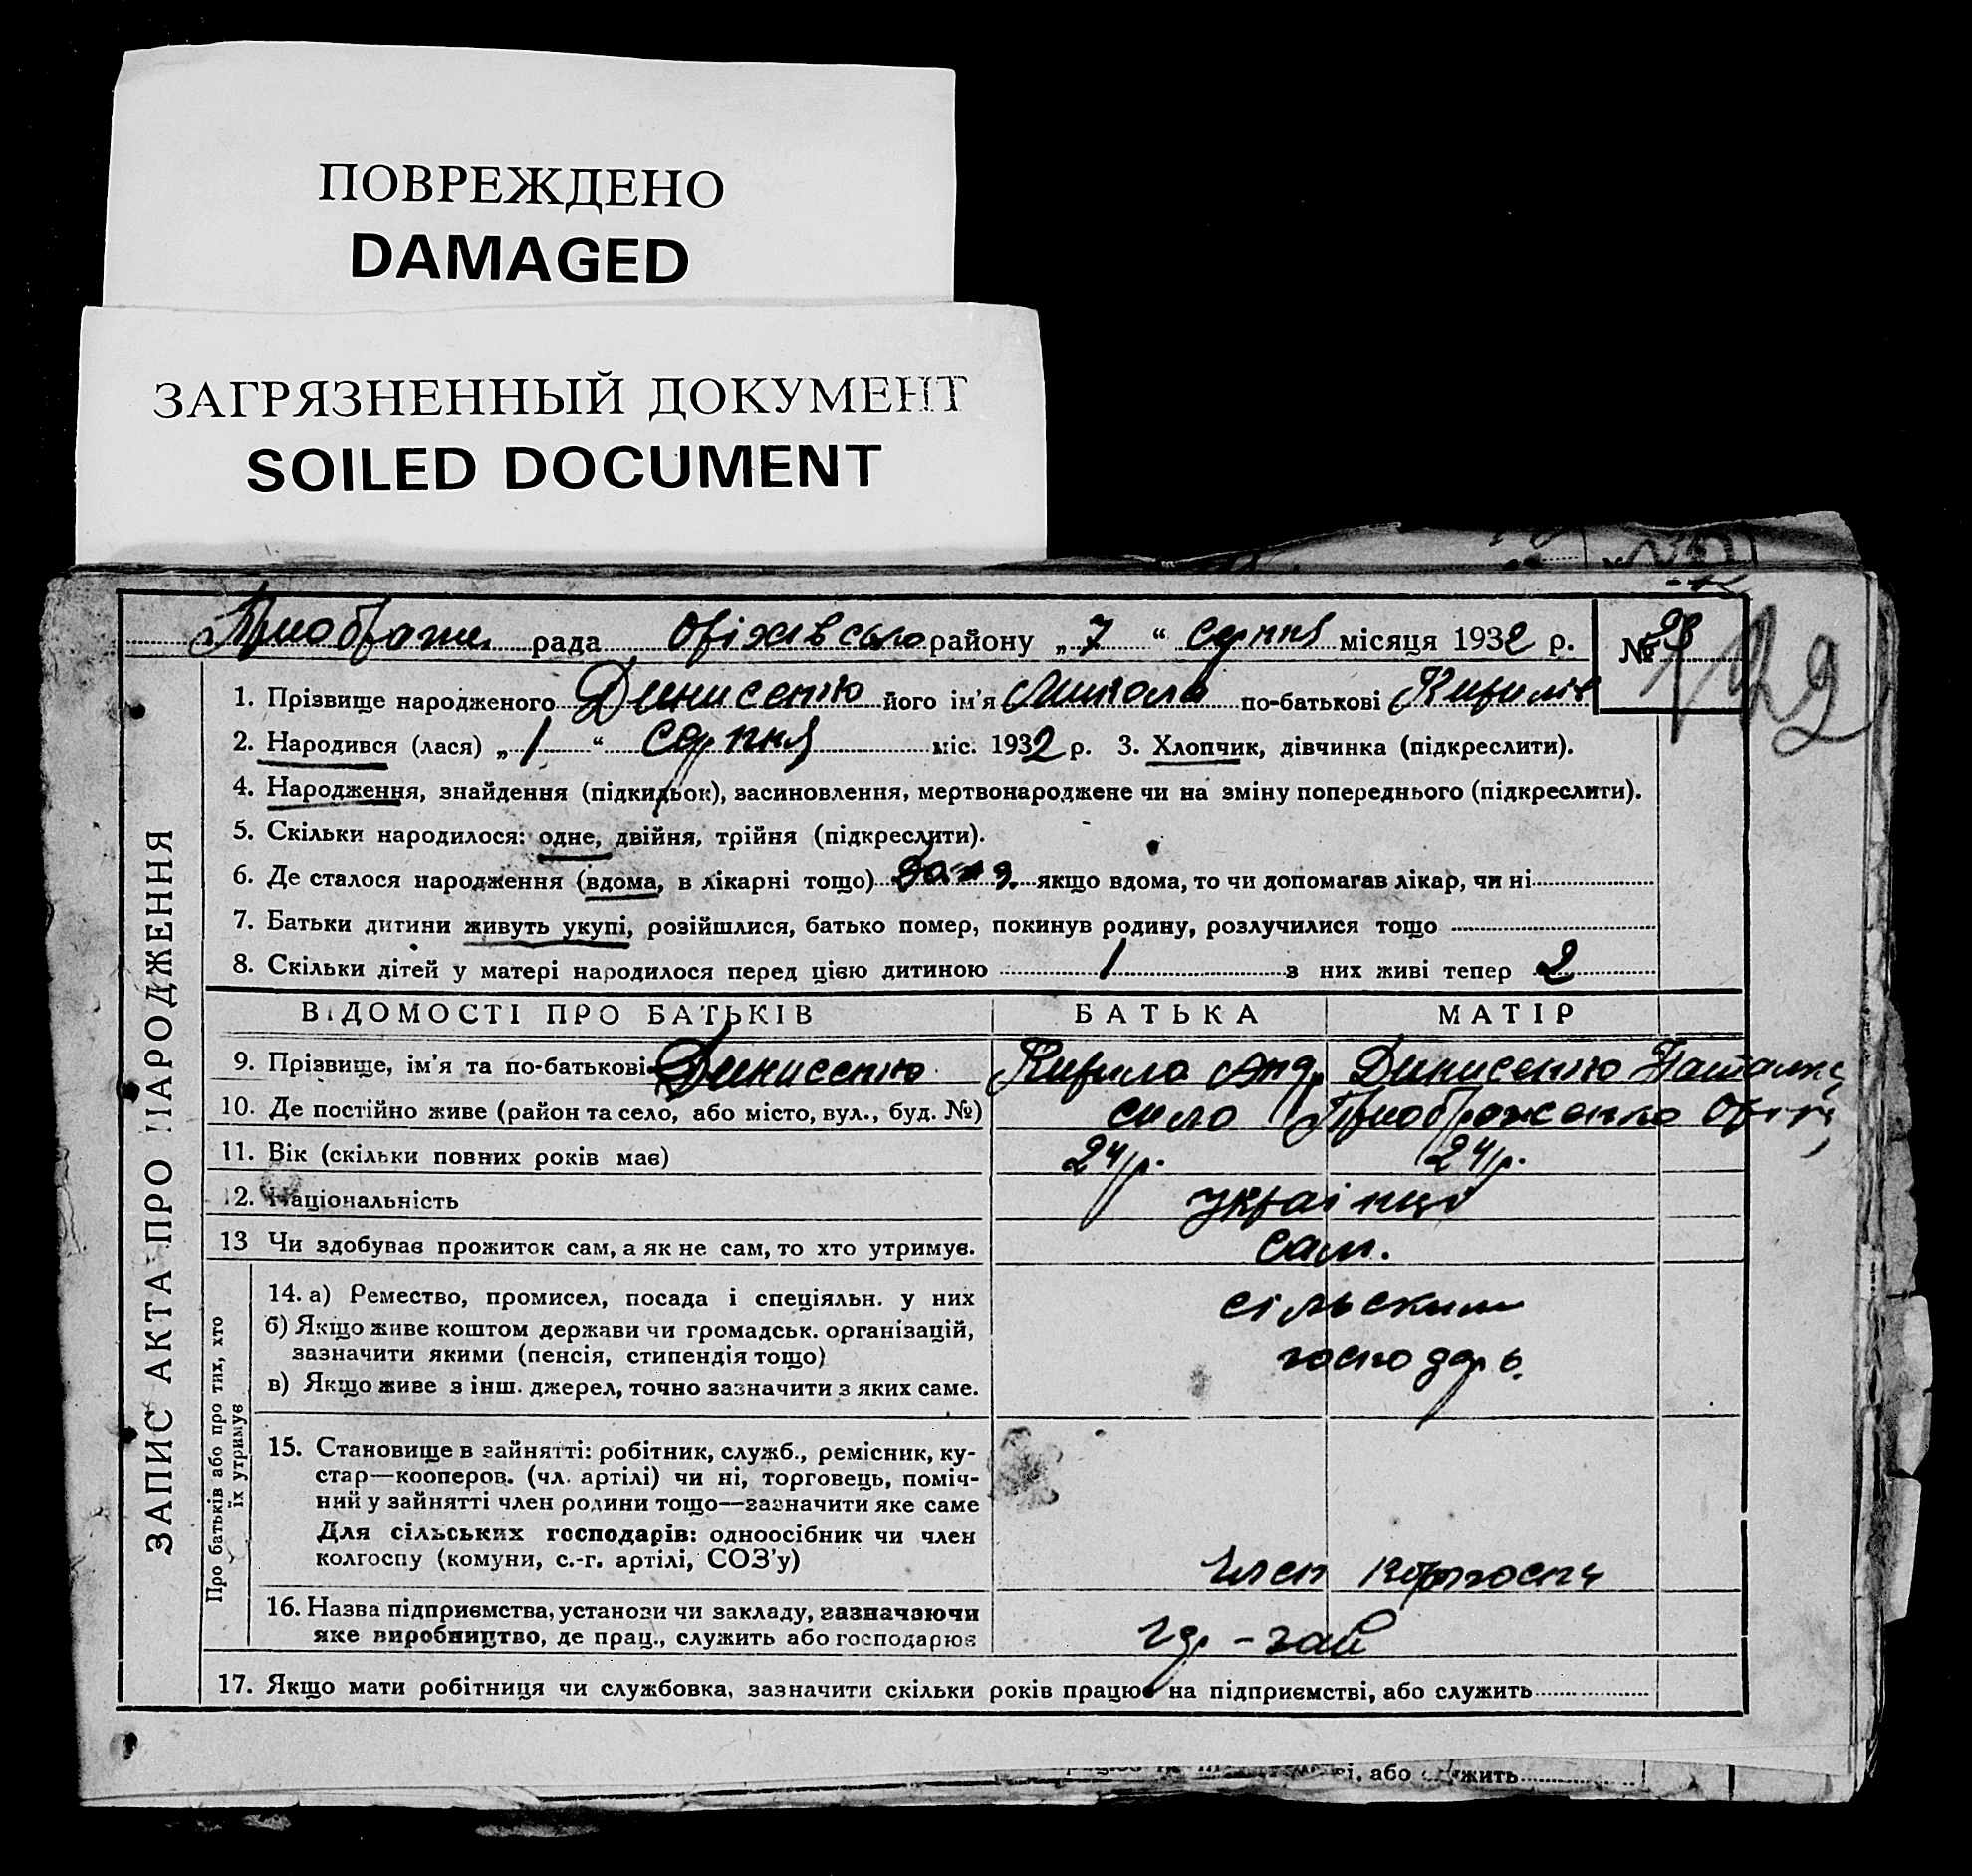 ПОВРЕЖДЕНО
DAMAGED
ЗАГРЯЗНЕННЫЙ ДОКУМЕНТ
SOILED DOCUMENT
рада Оріхівсько району „7“ серпня місяця 1932 р. №
122
ЗАПИС АКТА ПРО НАРОДЖЕННЯ
1. Прізвище народженого Денисенко його ім'я Микола по-батькові Кирилів
2. Народився (лася) „1“ серпня міс. 1932 р. 3. Хлопчик, дівчинка (підкреслити).
4. Народження, знайдення (підкидьок), засиновлення, мертвонароджене чи на зміну попереднього (підкреслити).
5. Скільки народилося: одне, двійня, трійня (підкреслити).
6. Де сталося народження (вдома, в лікарні тощо) якщо вдома, то чи допомагав лікар, чи ні
7. Батьки дитини живуть укупі, розійшлися, батько помер, покинув родину, розлучилися тощо
8. Скільки дітей у матері народилося перед цією дитиною 1 з них живі тепер 2
ВІДОМОСТІ ПРО БАТЬКІВ БАТЬКА МАТІР
9. Прізвище, ім'я та по-батькові Денисенко Кирило Анд Денисенко
10. Де постійно живе (район та село, або місто, вул., буд. №) село
11. Вік (скільки повних років має) 24 р. 24 р.
12. Національність українці
13 Чи здобуває прожиток сам, а як не сам, то хто утримує. сам.
Про батьків або про тих, хто їх утримує
14. а) Ремество, промисел, посада і спеціяльн. у них сільским
б) Якщо живе коштом держави чи громадськ. організацій,
зазначити якими (пенсія, стипендія тощо) господарь.
в) Якщо живе з інш. джерел, точно зазначити з яких саме.
15. Становище в зайнятті: робітник, служб., ремісник, ку-
стар—кооперов. (чл. артілі) чи ні, торговець, поміч-
ний у зайнятті член родини тощо—зазначити яке саме
Для сільських господарів: одноосібник чи член
колгоспу (комуни, с.-г. артілі, СОЗ'у) член
16. Назва підприємства, установи чи закладу, зазначаючи
яке виробництво, де прац., служить або господарює
17. Якщо мати робітниця чи службовка, зазначити скільки років працює на підприємстві, або служить
або служить